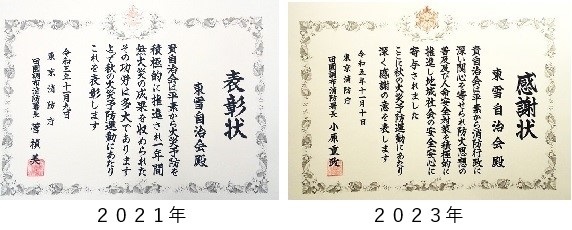 表彰状
東雪自治会殿
貴自治会は平素から火災予防を
積極的に推進され一年間
無火災の成果を収められた
その功績は多大であります
よって秋の火災予防運動にあたり
これを表彰します
東京消防庁
田園調布消防署長 菅 槙美
2021年
感謝状
東雪自治会殿
貴自治会は平素から消防行政に
深い関心を寄せられ防火思想の
普及及び人命安全対策を積極的に
推進し地域社会の安全安心に
寄与されました
ここに秋の火災予防運動にあたり
深く感謝の意を表します
令和五年十一月十日
東京消防庁
田園調布消防署長
2023年